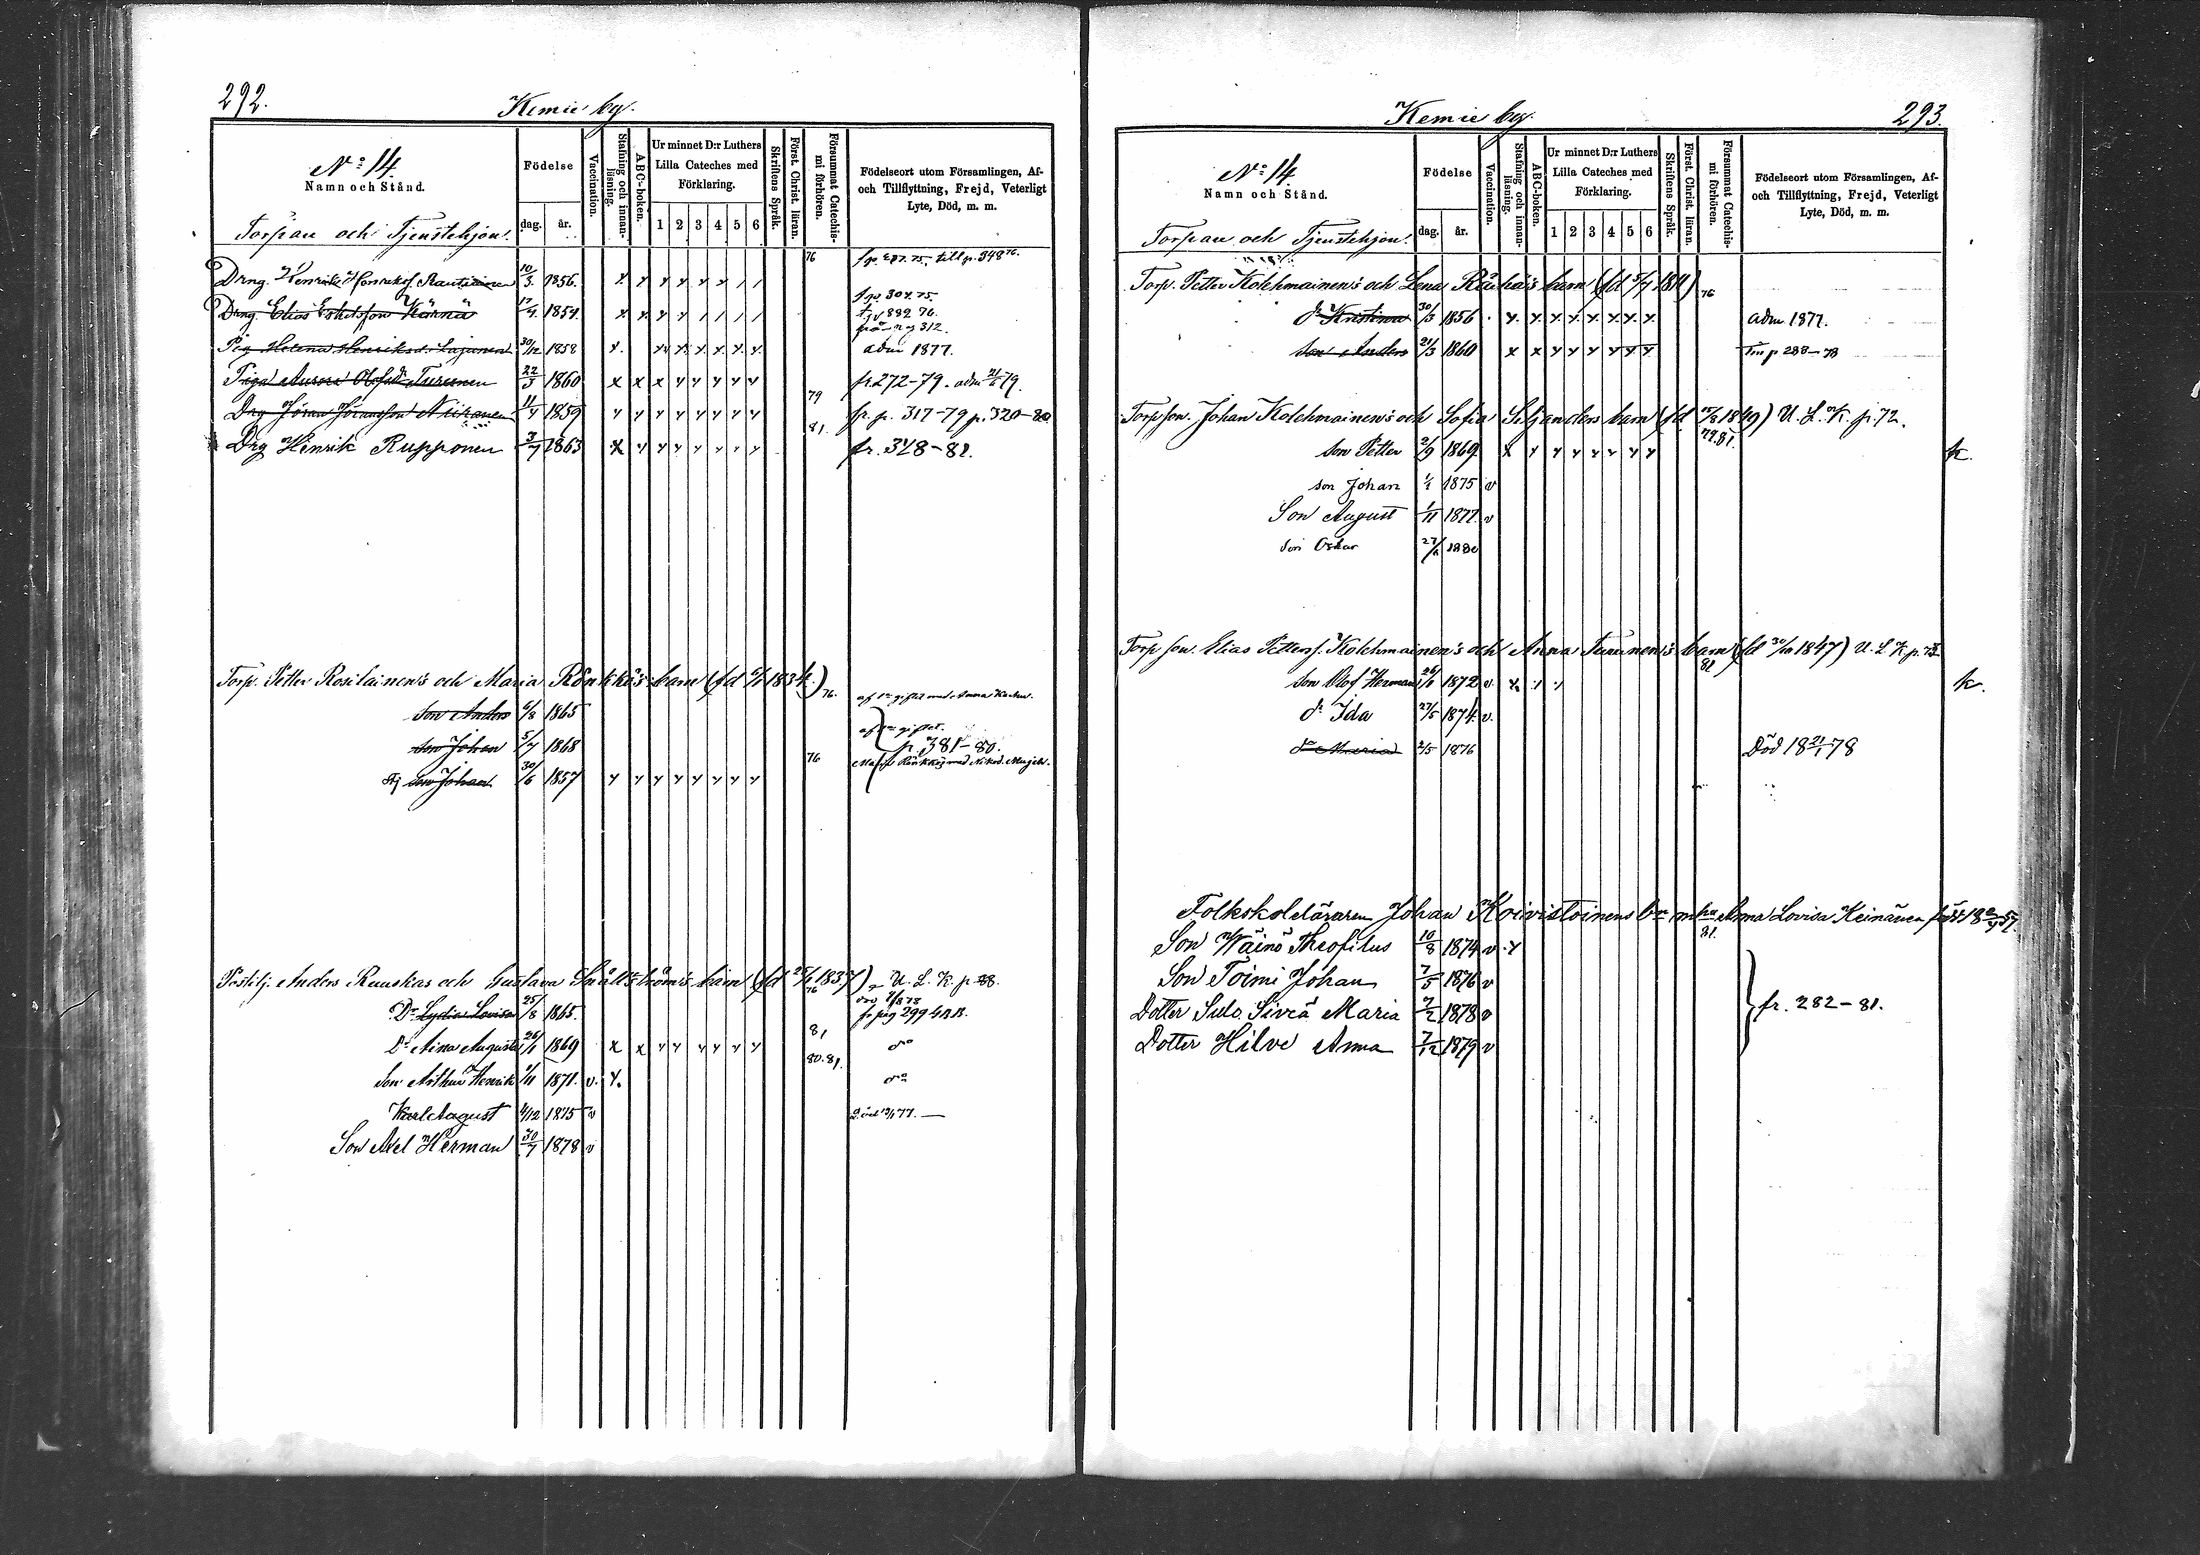 292.
Kemie by.
N:o 14.
Namn och Stånd.
Torpare och Tjenstehjon.
Födelse
dag.
år.
Vaccination.
Stafning och innanläsning.
ABC-boken.
Ur minnet D:r Luthers
Lilla Cateches med
Förklaring.
1 2 3 4 5 6
Skriftens Språk.
Först. Christ. läran.
Försummat Catechismi förhören.
Födelseort utom Församlingen, Af-
och Tillflyttning, Frejd, Veterligt
Lyte, Död, m. m.
Drng. Henrik Henriksf. Rautiainen 10/3 1856. 76 till p. 348 76.
Drng. Elias Eskelsson Kärnä 17/4 1854. 304. 75.
från pag 312.
Pig Helena Henriksd. Lajunen 30/12 1858 adm 1877.
Piga Aurora Olofsdr Turunen 22/3 1860 fr. 272-79. adm 79.
Drg Jöran Göransson Niiranen 11/4 1859 79 fr. p. 317-79 p. 320-80
Drg Henrik Rupponen 3/7 1863 81. fr. 348-81.
Torp. Petter Rosilainen's och Maria Rönkkö's barn (fd 1834.) 76.
Son Anders 6/8 1865
Son Johan 5/7 1868 p. 381-80.
Son Johan 30/6 1857 76
Postilj. Anders Ruuskas och Gustava barn (fd 1837) U. L. K. p 88.
Dr Lydia Lovisa 25/8 1865. 76 fr pag 299
Dr Aina Augusta 26/1 1869 81 do
Son Arthur Henrik 1/11 1871. v. 80. 81. do
Karl August 4/12 1875 v Död 77.
Son Axel Herman 30/7 1878 v
Kemie by.
293.
N:o 14.
Namn och Stånd.
Torpare och Tjenstehjon.
Födelse
dag.
år.
Vaccination.
Stafning och innanläsning.
ABC-boken.
Ur minnet D:r Luthers
Lilla Cateches med
Förklaring.
1 2 3 4 5 6
Skriftens Språk.
Först. Christ. läran.
Försummat Catechismi förhören.
Födelseort utom Församlingen, Af-
och Tillflyttning, Frejd, Veterligt
Lyte, Död, m. m.
Torp. Petter Kolehmainen's och Lena Räihä's barn (fd 5/7 1811) 76
dr Kristina 30/3 1856 adm 1877.
Son Anders 21/3 1860 p 288-78
Torp son. Johan Kolehmainen's och Sofia Siljanders barn (fd 1849) U. L. K. p. 72.
son Petter 2/9 1869 79. 81. k.
son Johan 1/1 1875 v
Son August 1/11 1877. v
son Oskar 1880
Torp son. Elias Petterss. Kolehmainen's och Anna Turunen's barn (fd 30/10 1847) U. L. K. p.
Son Olof Herman 26/1 1872 v. 81 k.
dr Ida 27/5 1874. v.
dr Maria 2/5 1876 Död 18 21/1 78
Folkskoleläraren Johan Koivistoinens bn m hu Anna Lovisa Keinänen född 18 57.
Son Wäinö Theofilus 10/8 1874 v 81.
Son Toimi Johan 7/5 1876 v
Dotter Sulo Siviä Maria 7/2 1878 v fr. 282-81.
Dotter Hilve Anna 7/12 1879 v